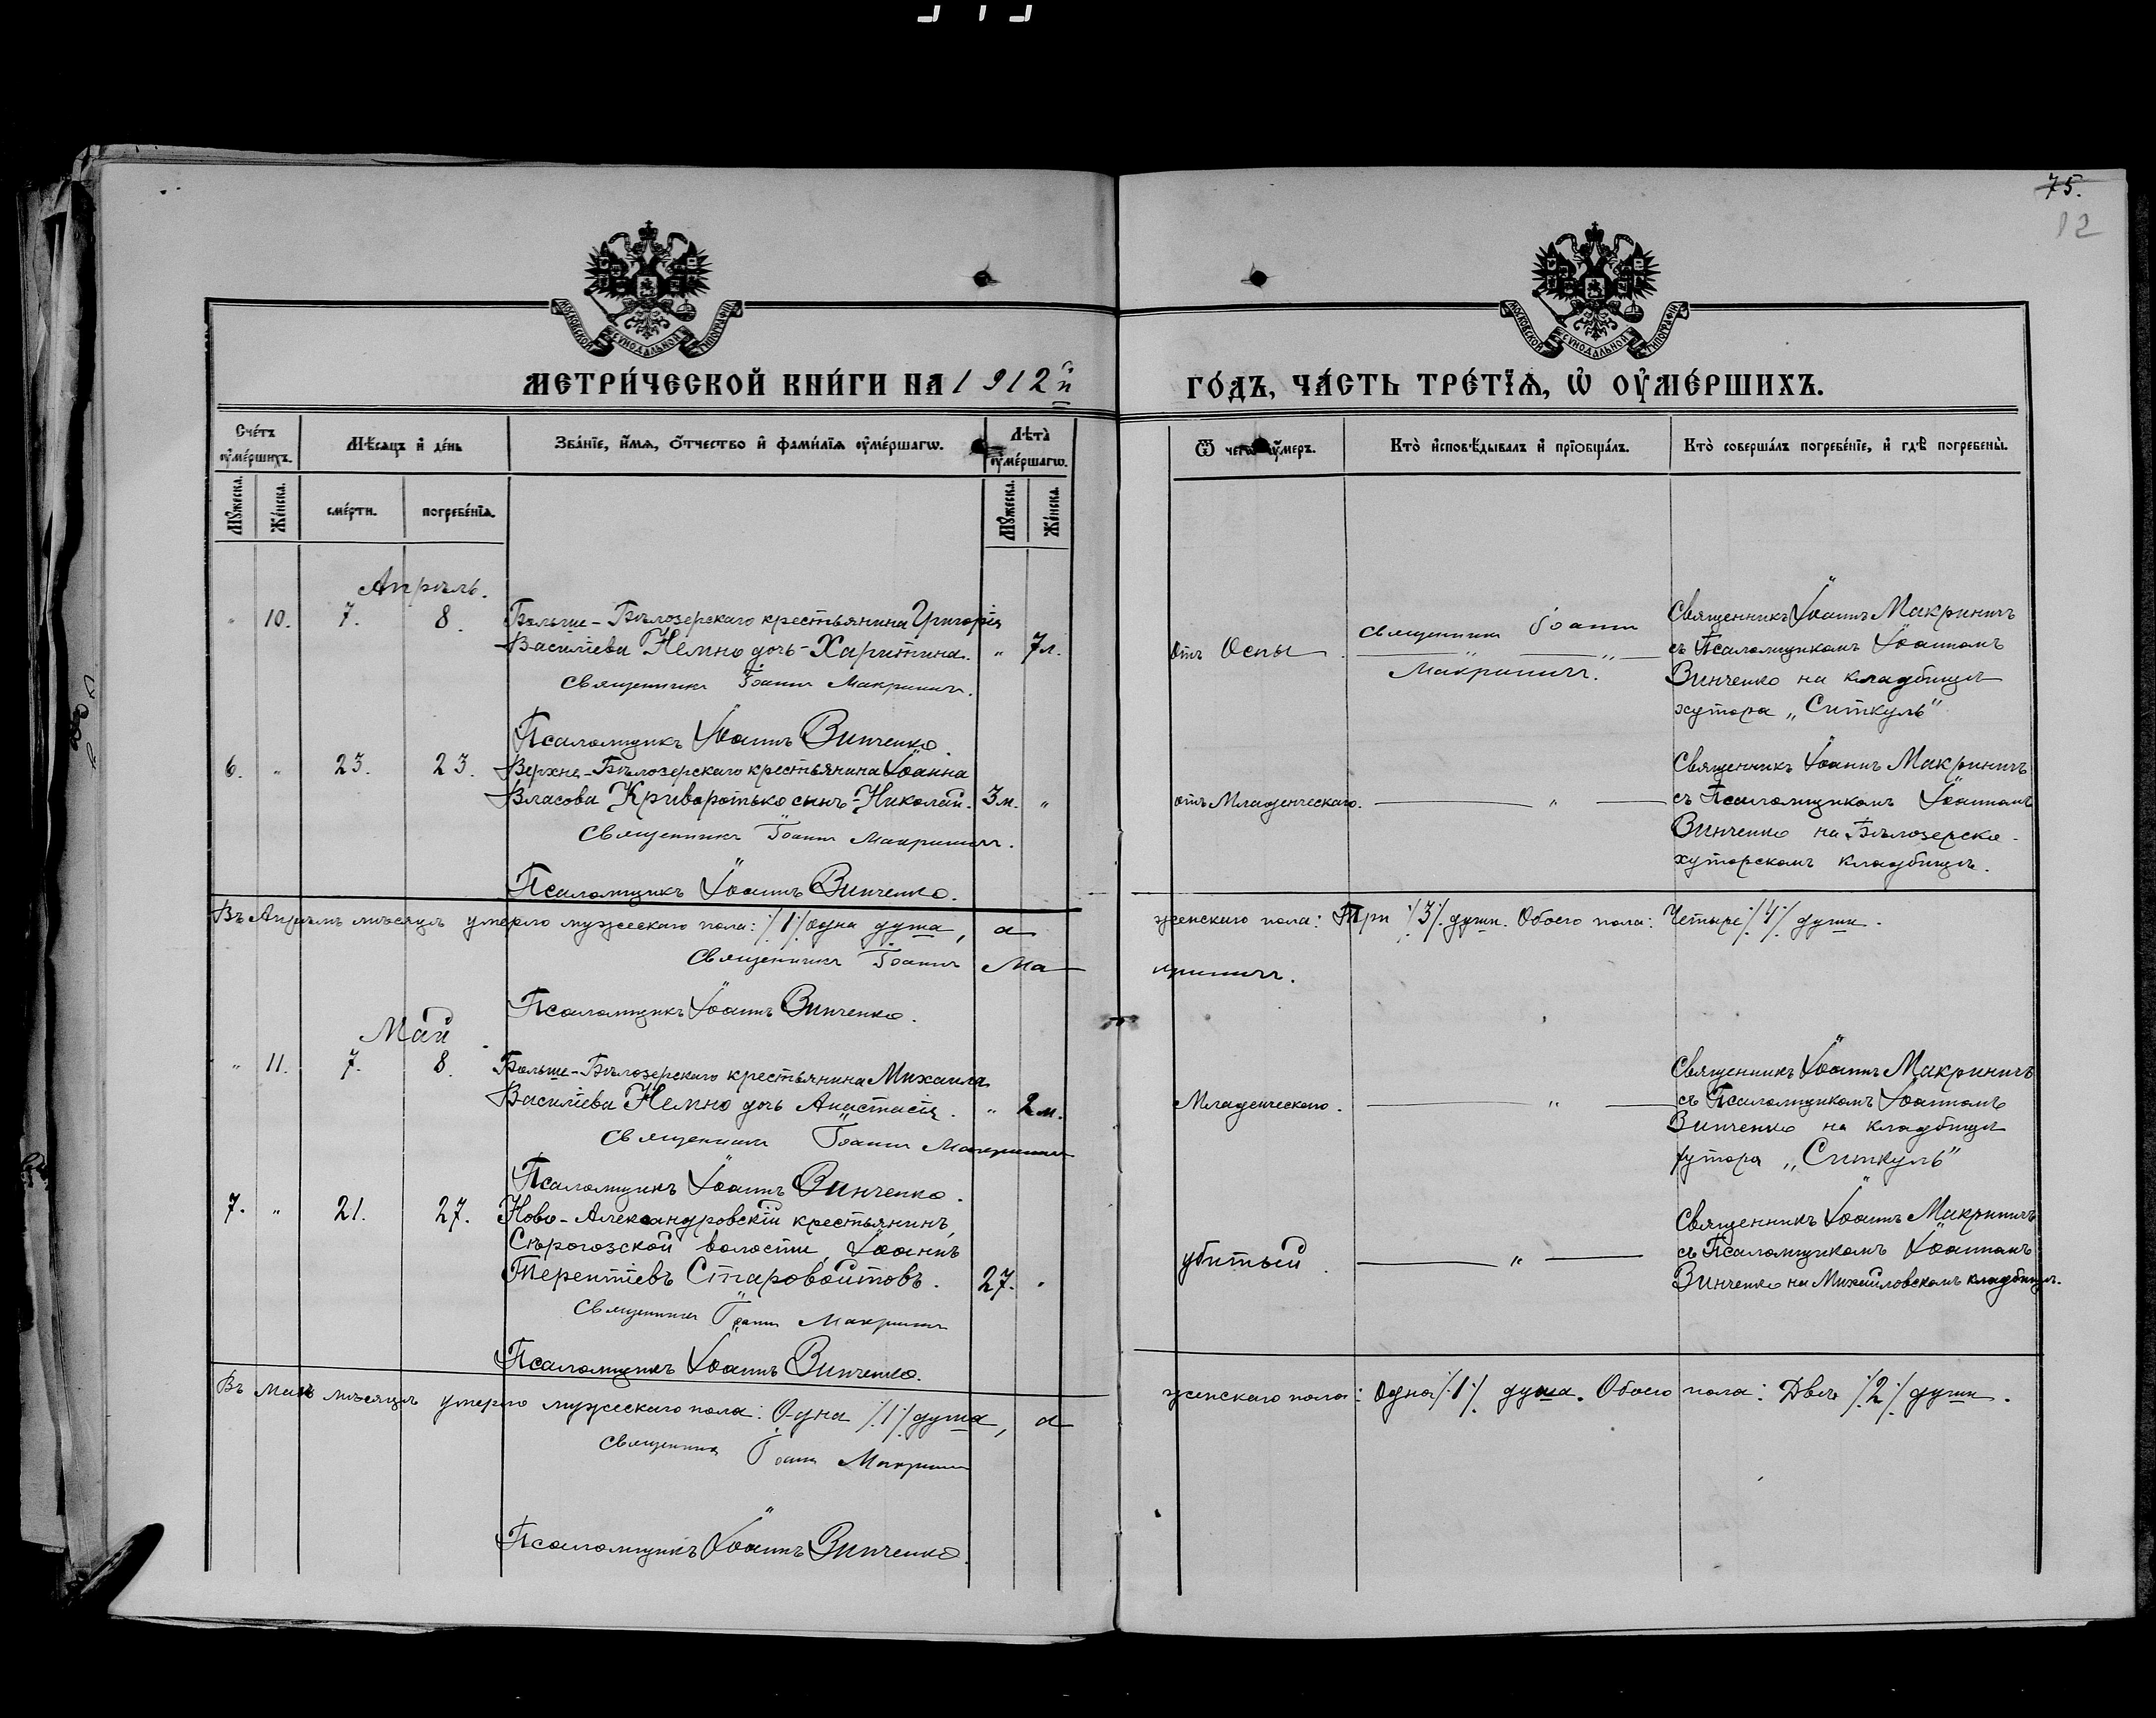 75.
12
МОСКОВСКОЙ СѴНОДАЛЬНОЙ ТИПОГРАФІИ
МОСКОВСКОЙ СѴНОДАЛЬНОЙ ТИПОГРАФІИ
МЕТРИ́ЧЕСКОЙ КНИ́ГИ НА 1912й
ГО́ДЪ, ЧА́СТЬ ТРЕ́ТІѦ, Ѡ҆ ОУ҆МЕ́РШИХЪ.
Сче́тъ оу҆ме́ршихъ.
Мѣ́сѧцъ и҆ де́нь
Зва́нїе, и҆́мѧ, ѻ҆́тчество и҆ фами́лїѧ оу҆ме́ршагѡ.
Лѣ́та оу҆ме́ршагѡ.
Ѿ чегѡ̀ оу҆́меръ.
Кто̀ и҆сповѣ́дывалъ и҆ прїѻбща́лъ.
Кто̀ соверша́лъ погребе́нїе, и҆ гдѣ̀ погребены̀.
Мꙋ́жеска.
Же́нска.
сме́рти.
погребе́нїѧ.
Мꙋ́жеска.
Же́нска.
Апрѣль.
" 10. 7. 8. Больше-Бѣлозерскаго крестьянина Григорія
Василіева Немно дочь-Харитина. " 7 л.
Священникъ Іоаннъ Макриничъ.
Псаломщикъ Іоаннъ Винченко.
отъ Оспы.
Священникъ Іоаннъ
Макриничъ.
Священникъ Іоаннъ Макриничъ
съ Псаломщикомъ Іоанномъ
Винченко на кладбищѣ
хутора „Ситкуль"
6. " 23. 23. Верхне-Бѣлозерскаго крестьянина Іоанна
Власова Криворотько сынъ-Николай. 3 м. "
Священникъ Іоаннъ Макриничъ.
Псаломщикъ Іоаннъ Винченко.
отъ Младенческаго. "
Священникъ Іоаннъ Макриничъ
съ Псаломщикомъ Іоанномъ
Винченко на Бѣлозерско-
хуторскомъ кладбищѣ.
Въ Апрѣлѣ мѣсяцѣ умерло мужескаго пола: /1/ одна душа, а женскаго пола: Три /3/ души. Обоего пола: Четыре /4/ души.
Священникъ Іоаннъ Макриничъ.
Псаломщикъ Іоаннъ Винченко.
Май
" 11. 7. 8. Больше-Бѣлозерскаго крестьянина Михаила
Василіева Немно дочь Анастасія. " 2 м.
Священникъ Іоаннъ Макриничъ
Псаломщикъ Іоаннъ Винченко.
Младенческаго. "
Священникъ Іоаннъ Макриничъ
съ Псаломщикомъ Іоанномъ
Винченко на кладбищѣ
хутора „Ситкуль"
7. " 21. 27. Ново-Александровскій крестьянинъ,
Сѣрогозской волости, Іоаннъ
Терентіевъ Старовойтовъ. 27. "
Священникъ Іоаннъ Макриничъ
Псаломщикъ Іоаннъ Винченко.
убитый. "
Священникъ Іоаннъ Макриничъ
съ Псаломщикомъ Іоанномъ
Винченко на Михайловскомъ кладбищѣ.
Въ маѣ мѣсяцѣ умерло мужескаго пола: Одна /1/ душа, а женскаго пола: Одна /1/ душа. Обоего пола: Двѣ /2/ души.
Священникъ Іоаннъ Макриничъ
Псаломщикъ Іоаннъ Винченко.